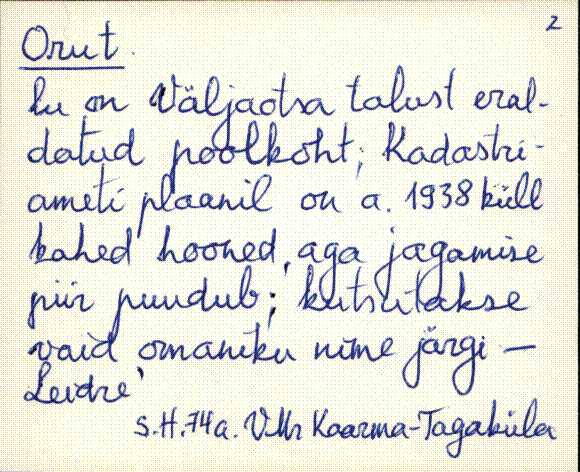 2
Orut.
lu on Väljaotsa talust eral-
datud poolkoht; Kadastri-
ameti plaanil on a. 1938 küll
kahed hooned, aga jagamise
piir puudub; kutsutakse
vaid omaniku nime järgi —
Leidre'
S.H. 74a. VMr Kaarma-Tagaküla